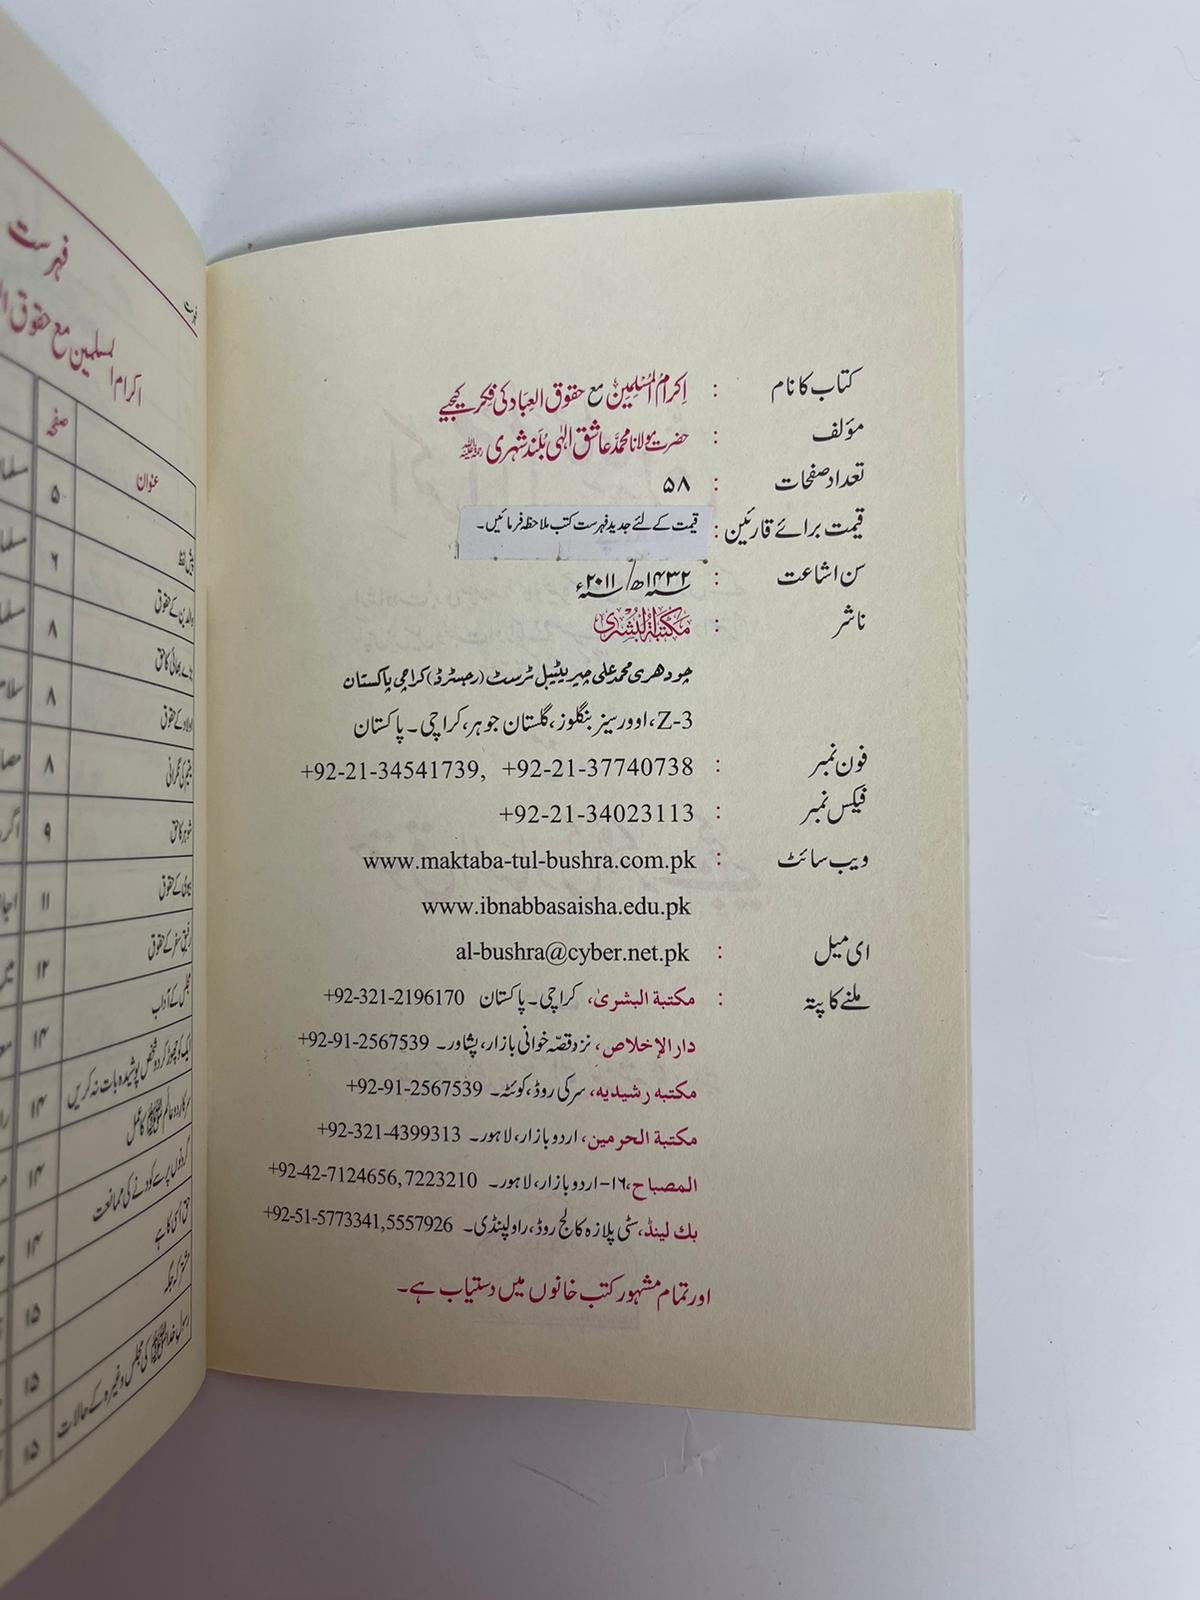 کتاب کا نام : اکرام المسلمین مع حقوق العباد کی فکر کیجیے
مؤلف : حضرت مولانا محمد عاشق الٰہی بلند شہری رحمۃ اللہ علیہ
تعداد صفحات : ۵۸
قیمت برائے قارئین : قیمت کے لئے جدید فہرست کتب ملاحظہ فرمائیں۔
سن اشاعت : ۱۴۳۲ھ/ ۲۰۱۱ء
ناشر : مکتبۃ البشریٰ
چودھری محمد علی چیریٹیبل ٹرسٹ (رجسٹرڈ) کراچی پاکستان
Z-3، اوورسیز بنگلوز، گلستان جوہر، کراچی۔ پاکستان
فون نمبر : +92-21-34541739, +92-21-37740738
فیکس نمبر : +92-21-34023113
ویب سائٹ : www.maktaba-tul-bushra.com.pk
www.ibnabbasaisha.edu.pk
ای میل : al-bushra@cyber.net.pk
ملنے کا پتہ : مکتبة البشریٰ، کراچی۔ پاکستان +92-321-2196170
دار الإخلاص، نزد قصّہ خوانی بازار، پشاور۔ +92-91-2567539
مکتبه رشیدیه، سرکی روڈ، کوئٹہ۔ +92-91-2567539
مکتبة الحرمین، اردو بازار، لاہور۔ +92-321-4399313
المصباح، ۱۶- اردو بازار، لاہور۔ +92-42-7124656, 7223210
بك لینڈ، سٹی پلازہ کالج روڈ، راولپنڈی۔ +92-51-5773341, 5557926
اور تمام مشہور کتب خانوں میں دستیاب ہے۔
فہرست
فہرست
اکرام المسلمین مع حقوق
عنوان صفحہ
پیش لفظ ۵
والدین کے حقوق ۶
بڑے بھائی کا حق ۸
اولاد کے حقوق ۸
یتیم کی نگرانی ۸
شوہر کا حق ۹
بیوی کے حقوق ۱۱
رفیق سفر کے حقوق ۱۲
مجلس کے آداب ۱۴
ایک کو چھوڑ کر دو شخص پوشیدہ بات نہ کریں ۱۴
سرکار دو عالم ﷺ کا عمل ۱۴
گردنوں پر سے کودنے کی ممانعت ۱۴
حق اسی کا ہے ۱۵
مشترکہ جگہ ۱۵
رسول خدا ﷺ کی مجلس وغیرہ کے حالات ۱۵